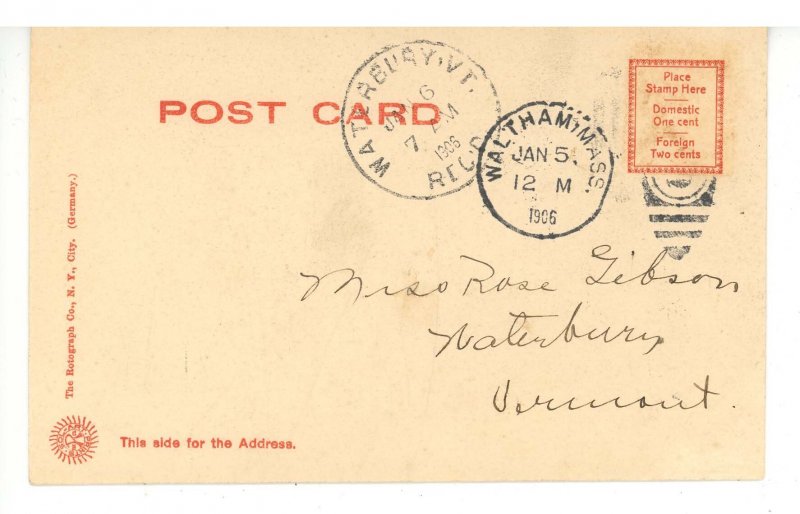 POST CARD
WATERBURY, VT.
JAN 6
7 AM
1906
REC'D
WALTHAM, MASS.
JAN 5
12 M
1906
Place
Stamp Here
Domestic
One cent
Foreign
Two cents
Miss Rose Gibson
Waterbury
Vermont.
The Rotograph Co., N. Y., City. (Germany.)
This side for the Address.